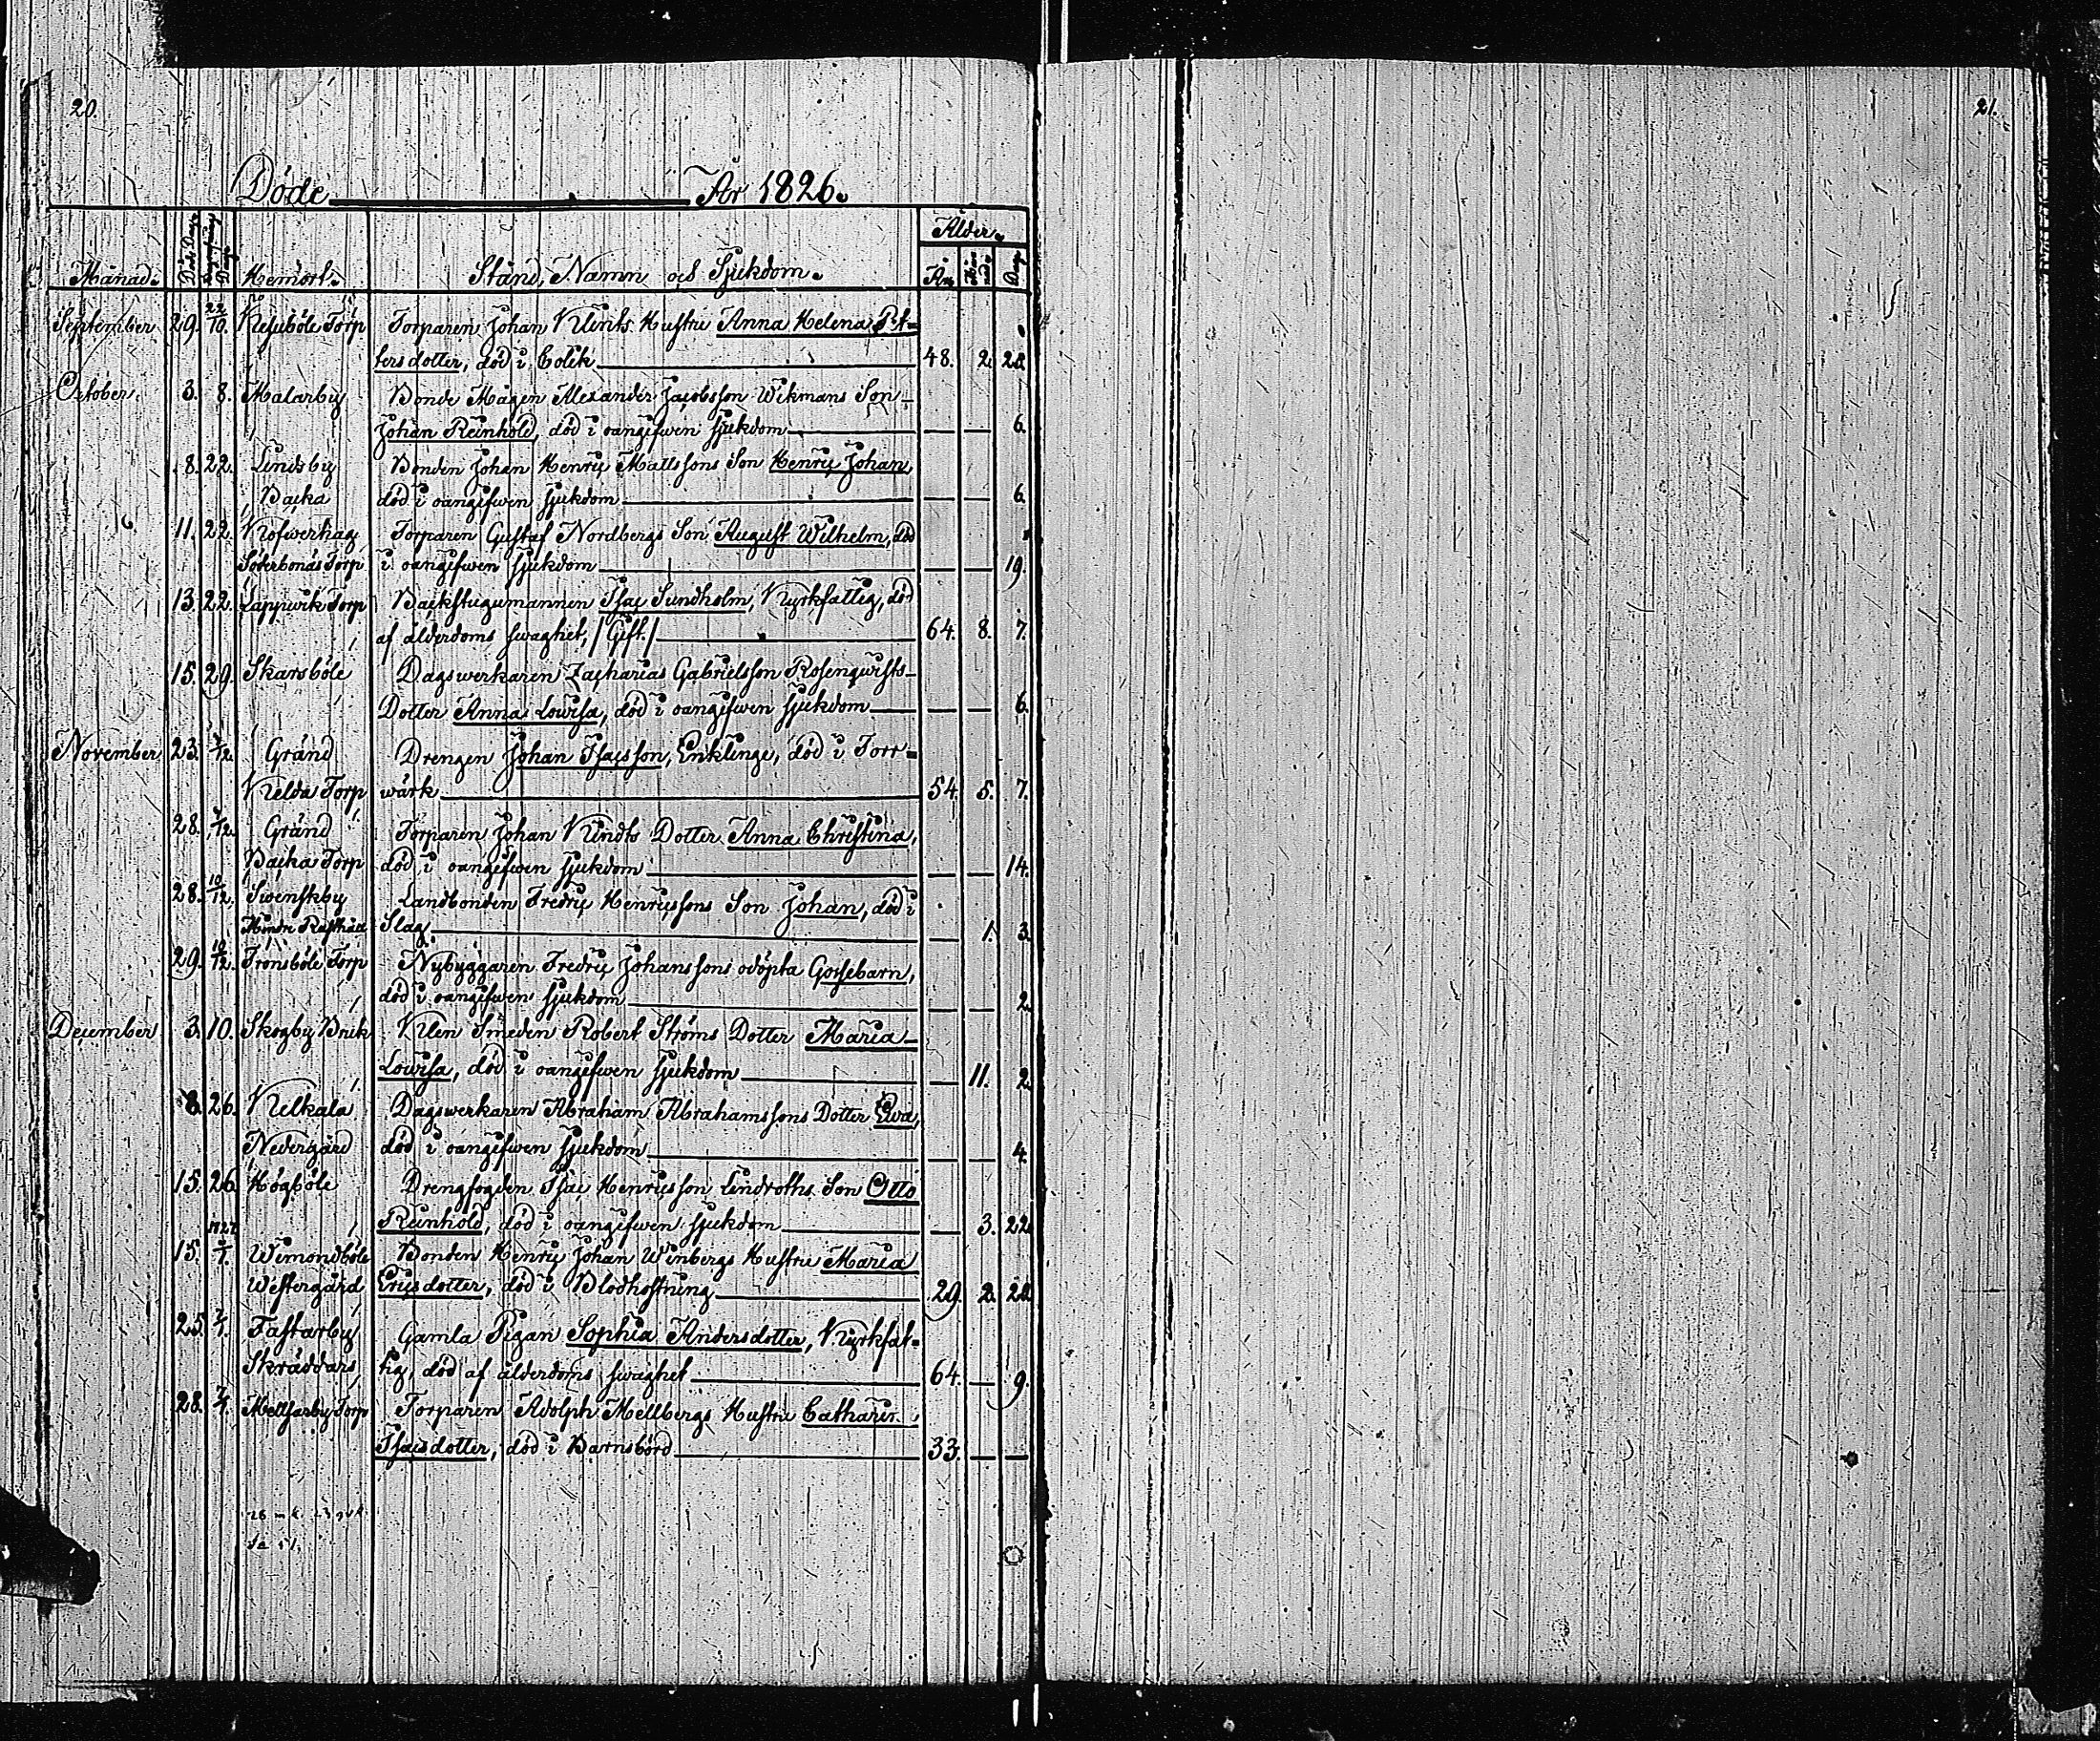 20.
21.
Döde År 1826.
Månad. Döds Dag Begrafnings Dag Hemort. Stånd, Namn och Sjukdom. Ålder. År. Månader Dag.
September 29. 22/10. Torp Torparen Johan Klints Hustru Anna Helena Pet-
tersdotter, död i Colik 48. 2. 28.
October. 3. 8. Malarby Bonde Mågen Alexander Jacobsson Wikmans Son
Johan Reinhold, död i oangifwen sjukdom 6.
8. 22. Lindsby Bonden Johan Henric Mattssons Son Henric Johan,
Backa död i oangifwen sjukdom 6.
11. 22. Kofwerhag Torparen Gustaf Nordbergs Son August Wilhelm, död
Torp i oangifwen sjukdom 19.
13. 22. Lappwik Torp Backstugumannen Isac Sundholm, Kyrkfattig, död
af ålderdoms swaghet, /Gift./ 64. 8. 7.
15. 29. Skarsböle Dagswerkaren Zacharias Gabrielsson Rosenqwists
Dotter Anna Lowisa, död i oangifwen sjukdom 6.
November 23. 3/12. Gränd Drengen Johan Isacsson, Enklinge, död i Torr-
Kelda Torp wärk 54. 5. 7.
28. 3/12. Gränd Torparen Johan Dotter Anna Christina,
Backa Torp död i oangifwen sjukdom 14.
28. 10/12. Swenskby Landbonden Fredric Henricssons Son Johan, död i
Slag 1. 3.
29. 10/12. Trönsböle Torp Nybyggaren Fredric Johanssons odöpta Gossebarn,
död i oangifwen sjukdom 2.
December 3. 10. Skogby Bruk Klen Smeden Robert Ströms Dotter Maria
Lowisa, död i oangifwen sjukdom 11. 2.
8. 26. Kelkala Dagswerkaren Abraham Abrahamssons Dotter Ewa,
Nedergård död i oangifwen sjukdom 4.
15. 26. Högböle Drengfogden Isac Henricsson Lindroths Son Otto
Reinhold, död i oangifwen sjukdom 3. 22.
1827.
15. 7/1. Wimondböle Bonden Henric Johan Winbergs Hustru Maria
Westergård Ericsdotter, död i Blodhostning 29. 2. 28.
25. 7/1. Fastarby Gamla Pigan Sophia Andersdotter, Kyrkfat-
Skräddars tig, död af ålderdoms swaghet 64. 9.
28. 7/1. Torp Torparen Adolph Mellbergs Hustru Catharin
Isacsdotter, död i Barnsbörd 33.